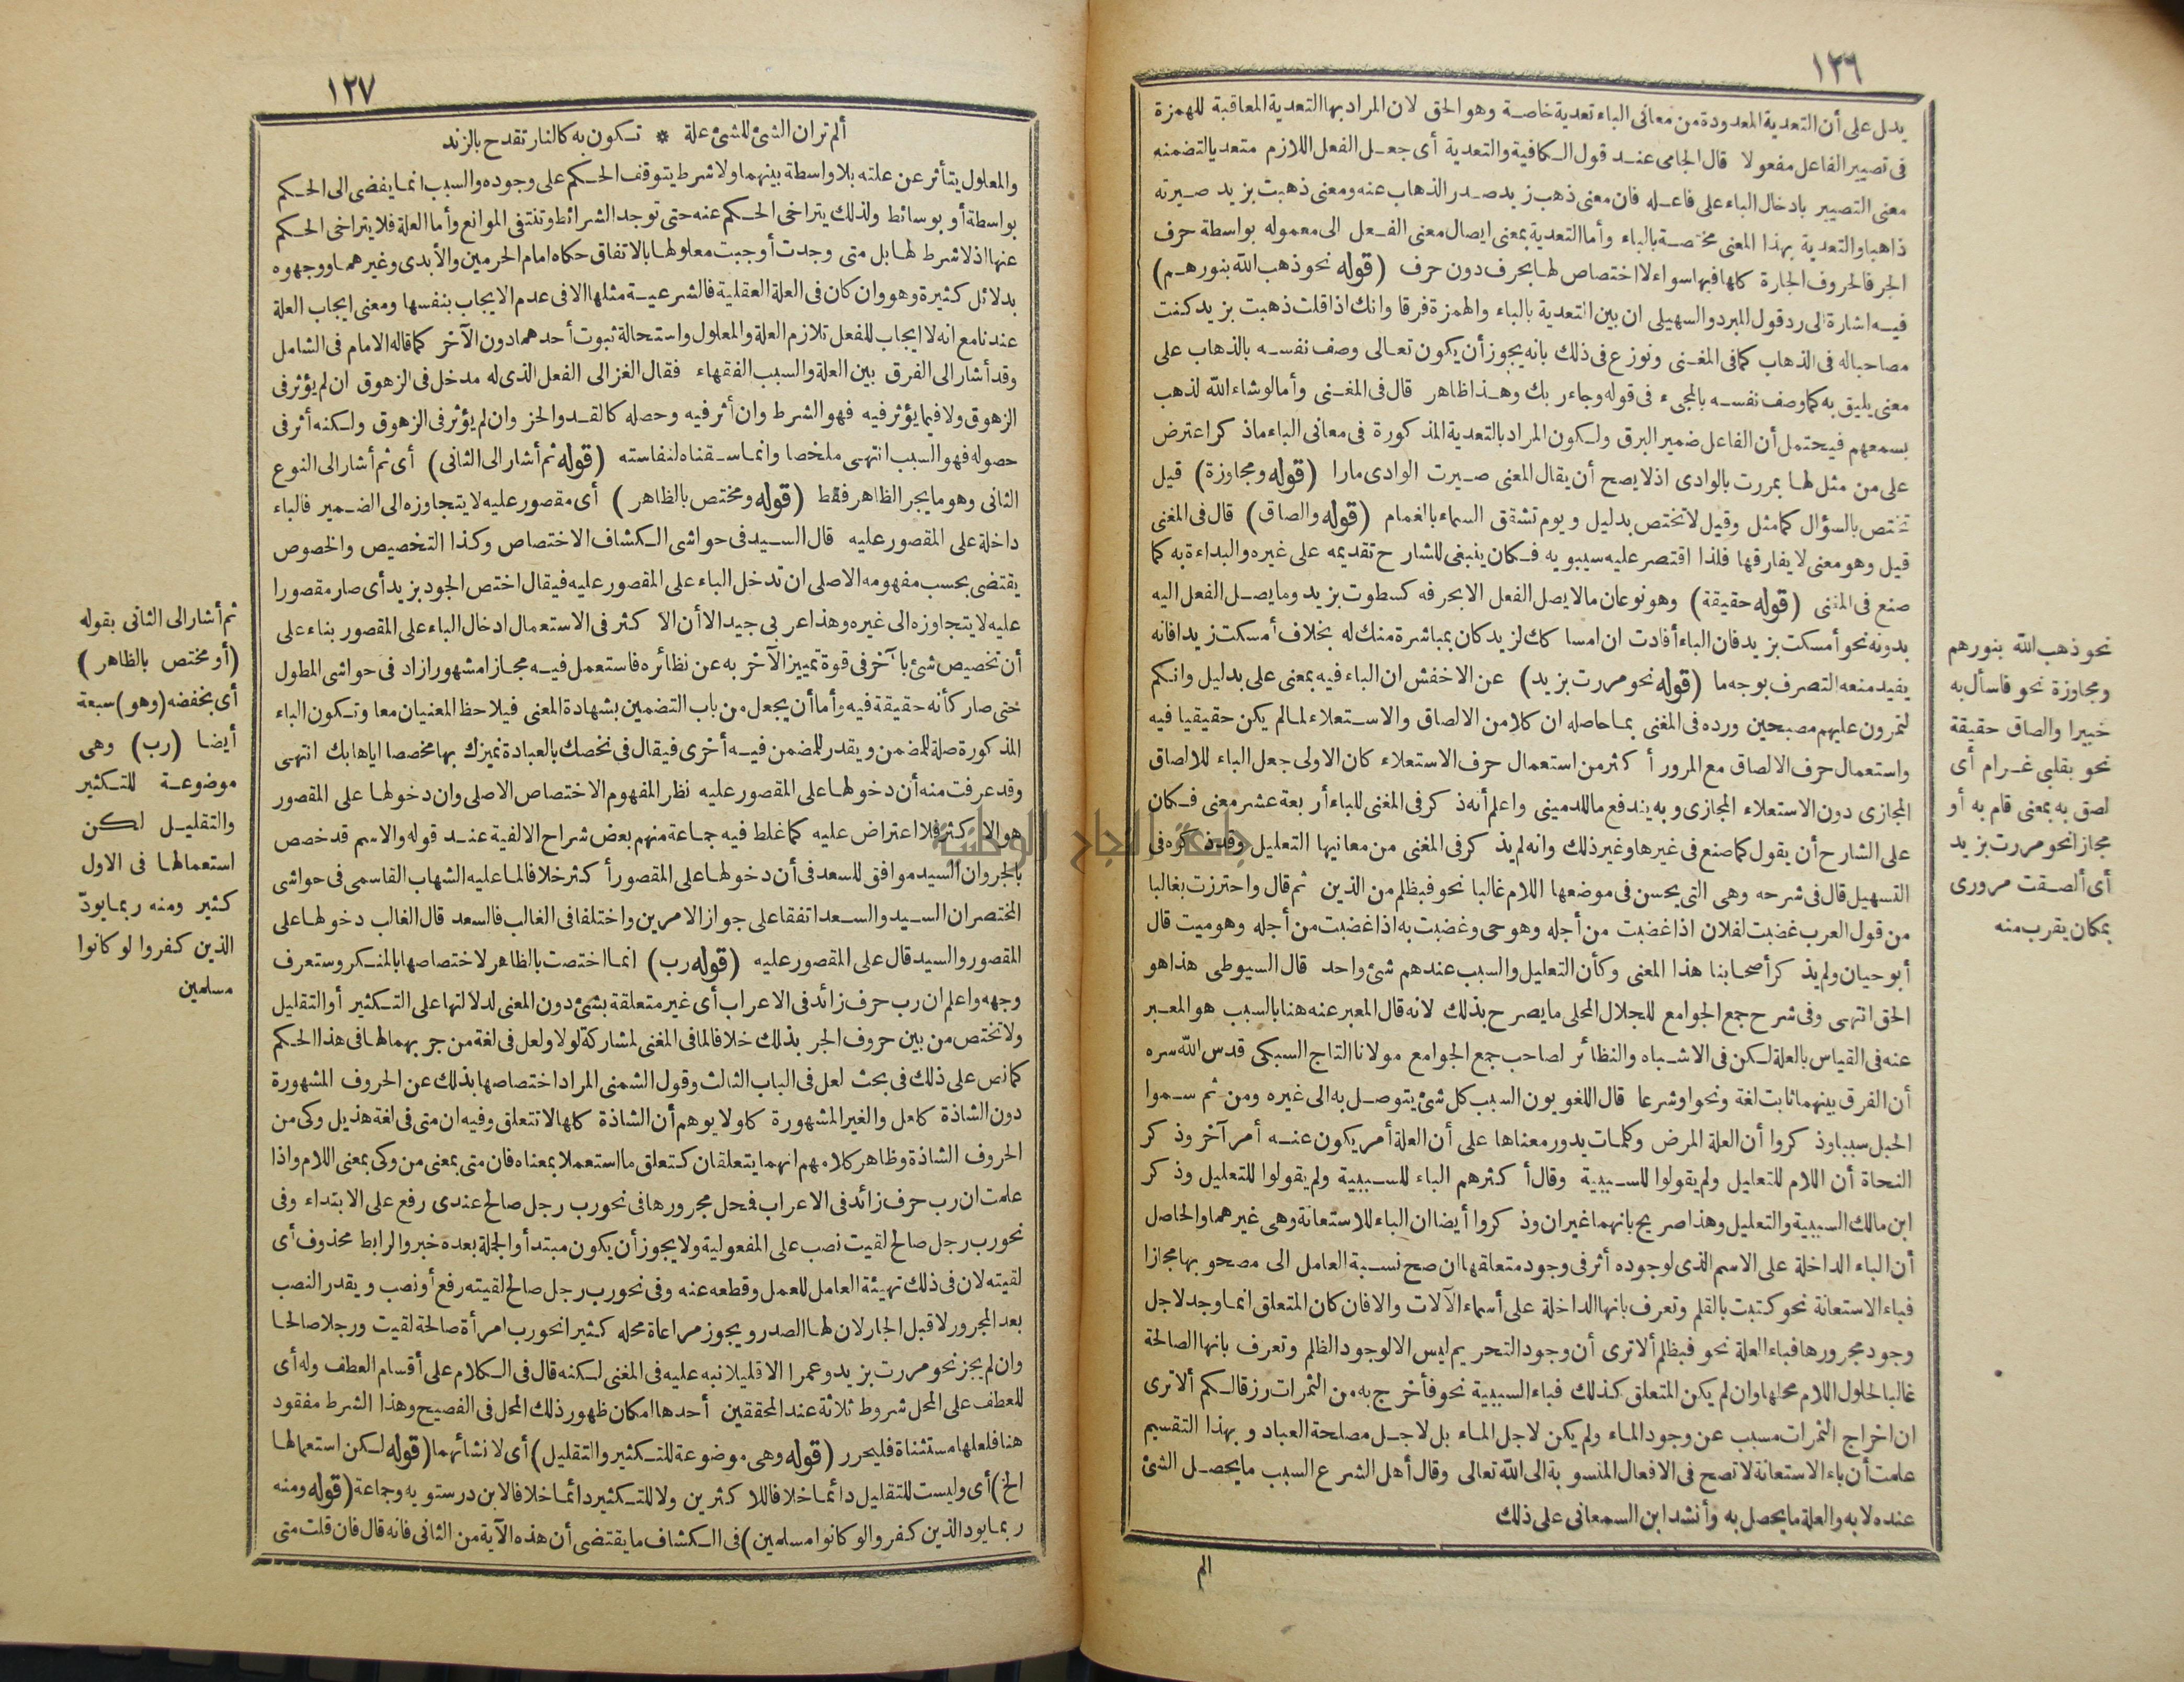 ١٢٦
يدل على أن التعدية المعدودة من معانى الباء تعدية خاصة وهو الحق لان المراد بها التعدية المعاقبة للهمزة
فى تصيير الفاعل مفعولا قال الجامى عند قول الكافية والتعدية أى جعل الفعل اللازم متعديا لتضمنه
معنى التصيير بادخال الباء على فاعله فان معنى ذهب زيد صدر الذهاب عنه ومعنى ذهبت بزيد صيرته
ذاهبا والتعدية بهذا المعنى مختصة بالباء وأما التعدية بمعنى ايصال معنى الفعل الى معموله بواسطة حرف
الجر فالحروف الجارة كلها فيها سواء لا اختصاص لها بحرف دون حرف (قوله نحو ذهب الله بنورهم)
فيه اشارة الى رد قول المبرد والسهيلى ان بين التعدية بالباء والهمزة فرقا وانك اذا قلت ذهبت بزيد كنت
مصاحباله فى الذهاب كما فى المغنى ونوزع فى ذلك بانه يجوز أن يكون تعالى وصف نفسه بالذهاب على
معنى يليق به كما وصف نفسه بالمجىء فى قوله وجاء ربك وهذا ظاهر قال فى المغنى وأما لو شاء الله لذهب
بسمعهم فيحتمل أن الفاعل ضمير البرق ولكون المراد بالتعدية المذكورة فى معانى الباء ماذكر اعترض
على من مثل لها بمررت بالوادى اذ لا يصح أن يقال المعنى صيرت الوادى مارا (قوله ومجاوزة) قيل
تختص بالسؤال كما مثل وقيل لا تختص بدليل ويوم تشقق السماء بالغمام (قوله والصاق) قال فى المغنى
قيل وهو معنى لا يفارقها فلذا اقتصر عليه سيبويه فكان ينبغى للشارح تقديمه على غيره والبداءة به كما
صنع فى المغنى (قوله حقيقة) وهو نوعان مالا يصل الفعل الا بحرفه كسطوت بزيد وما يصل الفعل اليه
بدونه نحو أمسكت بزيد فان الباء أفادت ان امساكك لزيد كان بمباشرة منك له بخلاف أمسكت زيدا فانه
يفيد منعه التصرف بوجه ما (قوله نحو مررت بزيد) عن الاخفش ان الباء فيه بمعنى على بدليل وانكم
لتمرون عليهم مصبحين ورده فى المغنى بما حاصله ان كلا من الالصاق والاستعلاء لما لم يكن حقيقيا فيه
واستعمال حرف الالصاق مع المرور أكثر من استعمال حرف الاستعلاء كان الاولى جعل الباء للالصاق
المجازى دون الاستعلاء المجازى وبه يندفع ما للدمينى واعلم أنه ذكر فى المغنى للباء أربعة عشر معنى فكان
على الشارح أن يقول كما صنع فى غيرها وغير ذلك وانه لم يذكر فى المغنى من معانيها التعليل وقد ذكره فى
التسهيل قال فى شرحه وهى التى يحسن فى موضعها اللام غالبا نحو فبظلم من الذين ثم قال واحترزت بغالبا
من قول العرب غضبت لفلان اذا غضبت من أجله وهو حى وغضبت به اذا غضبت من أجله وهو ميت قال
أبو حيان ولم يذكر أصحابنا هذا المعنى وكأن التعليل والسبب عندهم شئ واحد قال السيوطى هذا هو
الحق انتهى وفى شرح جمع الجوامع للجلال المحلى ما يصرح بذلك لانه قال المعبر عنه هنا بالسبب هو المعبر
عنه فى القياس بالعلة لكن فى الاشباه والنظائر لصاحب جمع الجوامع مولانا التاج السبكى قدس الله سره
أن الفرق بينهما ثابت لغة ونحوا وشرعا قال اللغويون السبب كل شئ يتوصل به الى غيره ومن ثم سموا
الحبل سببا وذكروا أن العلة المرض وكلمات يدور معناها على أن العلة أمر يكون عنه أمر آخر وذكر
النحاة أن اللام للتعليل ولم يقولوا للسببية وقال أكثرهم الباء للسببية ولم يقولوا للتعليل وذكر
ابن مالك السببية والتعليل وهذا صريح بانهما غيران وذكروا أيضا ان الباء للاستعانة وهى غيرهما والحاصل
أن الباء الداخلة على الاسم الذى لوجوده أثر فى وجود متعلقها ان صح نسبة العامل الى مصحوبها مجازا
فباء الاستعانة نحو كتبت بالقلم وتعرف بانها الداخلة على أسماء الآلات والا فان كان المتعلق انما وجد لاجل
وجود مجرورها فباء العلة نحو فبظلم ألا ترى أن وجود التحريم ليس الا لوجود الظلم وتعرف بانها الصالحة
غالبا لحلول اللام محلها وان لم يكن المتعلق كذلك فباء السببية نحو فأخرج به من الثمرات رزقا لكم ألا ترى
ان اخراج الثمرات مسبب عن وجود الماء ولم يكن لاجل الماء بل لاجل مصلحة العباد وبهذا التقسيم
علمت أن باء الاستعانة لا تصح فى الافعال المنسوبة الى الله تعالى وقال أهل الشرع السبب ما يحصل الشئ
عنده لا به والعلة ما يحصل به وأنشد ابن السمعانى على ذلك
الم
نحو ذهب الله بنورهم
ومجاوزة نحو فاسأل به
خبيرا والصاق حقيقة
نحو بقلبى غرام أى
لصق به بمعنى قام به أو
مجازا نحو مررت بزيد
أى ألصقت مرورى
بمكان يقرب منه
١٢٧
ألم تر ان الشئ للشئ علة * تكون به كالنار تقدح بالزند
والمعلول يتأثر عن علته بلا واسطة بينهما ولا شرط يتوقف الحكم على وجوده والسبب انما يفضى الى الحكم
بواسطة أو بوسائط ولذلك يتراخى الحكم عنه حتى توجد الشرائط وتنتفى الموانع وأما العلة فلا يتراخى الحكم
عنها اذ لا شرط لها بل متى وجدت أوجبت معلولها بالاتفاق حكاه امام الحرمين والأبدى وغيرهما ووجهوه
بدلائل كثيرة وهو وان كان فى العلة العقلية فالشرعية مثلها الا فى عدم الايجاب بنفسها ومعنى ايجاب العلة
عندنا مع انه لا ايجاب للفعل تلازم العلة والمعلول واستحالة ثبوت أحدهما دون الآخر كما قاله الامام فى الشامل
وقد أشار الى الفرق بين العلة والسبب الفقهاء فقال الغزالى الفعل الذى له مدخل فى الزهوق ان لم يؤثر فى
الزهوق ولا فيما يؤثر فيه فهو الشرط وان أثر فيه وحصله كالقد والحز وان لم يؤثر فى الزهوق ولكنه أثر فى
حصوله فهو السبب انتهى ملخصا وانما سقناه لنفاسته (قوله ثم أشار الى الثانى) أى ثم أشار الى النوع
الثانى وهو ما يجر الظاهر فقط (قوله ومختص بالظاهر) أى مقصور عليه لا يتجاوزه الى الضمير فالباء
داخلة على المقصور عليه قال السيد فى حواشى الكشاف الاختصاص وكذا التخصيص والخصوص
يقتضى بحسب مفهومه الاصلى ان تدخل الباء على المقصور عليه فيقال اختص الجود بزيد أى صار مقصورا
عليه لا يتجاوزه الى غيره وهذا عربى جيد الا أن الاكثر فى الاستعمال ادخال الباء على المقصور بناء على
أن تخصيص شئ بآخر فى قوة تمييز الآخر به عن نظائره فاستعمل فيه مجازا مشهورا زاد فى حواشى المطول
حتى صار كأنه حقيقة فيه وأما أن يجعل من باب التضمين بشهادة المعنى فيلاحظ المعنيان معا وتكون الباء
المذكورة صلة للمضمن ويقدر للمضمن فيه أخرى فيقال فى نخصك بالعبادة نميزك بها مخصصا اياها بك انتهى
وقد عرفت منه أن دخولها على المقصور عليه نظر المفهوم الاختصاص الاصلى وان دخولها على المقصور
هو الاكثر فلا اعتراض عليه كما غلط فيه جماعة منهم بعض شراح الالفية عند قوله والاسم قد خصص
بالجر وان السيد موافق للسعد فى أن دخولها على المقصور أكثر خلافا لما عليه الشهاب القاسمى فى حواشى
المختصر ان السيد والسعد اتفقا على جواز الامرين واختلفا فى الغالب فالسعد قال الغالب دخولها على
المقصور والسيد قال على المقصور عليه (قوله رب) انما اختصت بالظاهر لاختصاصها بالمنكر وستعرف
وجهه واعلم ان رب حرف زائد فى الاعراب أى غير متعلقة بشئ دون المعنى لدلالتها على التكثير أو التقليل
ولا تختص من بين حروف الجر بذلك خلافا لما فى المغنى لمشاركة لولا ولعل فى لغة من جر بهما لها فى هذا الحكم
كما نص على ذلك فى بحث لعل فى الباب الثالث وقول الشمنى المراد اختصاصها بذلك عن الحروف المشهورة
دون الشاذة كلعل والغير المشهورة كلولا يوهم أن الشاذة كلها لا تتعلق وفيه ان متى فى لغة هذيل وكى من
الحروف الشاذة وظاهر كلامهم انهما يتعلقان كتعلق ما استعملا بمعناه فان متى بمعنى من وكى بمعنى اللام واذا
علمت ان رب حرف زائد فى الاعراب فمحل مجرورها فى نحو رب رجل صالح عندى رفع على الابتداء وفى
نحو رب رجل صالح لقيت نصب على المفعولية ولا يجوز أن يكون مبتدأ والجملة بعده خبر والرابط محذوف أى
لقيته لان فى ذلك تهيئة العامل للعمل وقطعه عنه وفى نحو رب رجل صالح لقيته رفع أو نصب ويقدر النصب
بعد المجرور لا قبل الجار لان لها الصدر ويجوز مراعاة محله كثيرا نحو رب امرأة صالحة لقيت ورجلا صالحا
وان لم يجز نحو مررت بزيد وعمرا الا قليلا نبه عليه فى المغنى لكنه قال فى الكلام على أقسام العطف وله أى
للعطف على المحل شروط ثلاثة عند المحققين أحدها امكان ظهور ذلك المحل فى الفصيح وهذا الشرط مفقود
هنا فلعلها مستثناة فليحرر (قوله وهى موضوعة للتكثير والتقليل) أى لانشائهما (قوله لكن استعمالها
الخ) أى وليست للتقليل دائما خلافا للاكثرين ولا للتكثير دائما خلافا لابن درستويه وجماعة (قوله ومنه
ربما يود الذين كفروا لو كانوا مسلمين) فى الكشاف ما يقتضى أن هذه الآية من الثانى فانه قال فان قلت متى
ثم أشار الى الثانى بقوله
(أو مختص بالظاهر)
أى بخفضه (وهو) سبعة
أيضا (رب) وهى
موضوعة للتكثير
والتقليل لكن
استعمالها فى الاول
كثير ومنه ربما يودّ
الذين كفروا لو كانوا
مسلمين
جامعة النجاح الوطنية